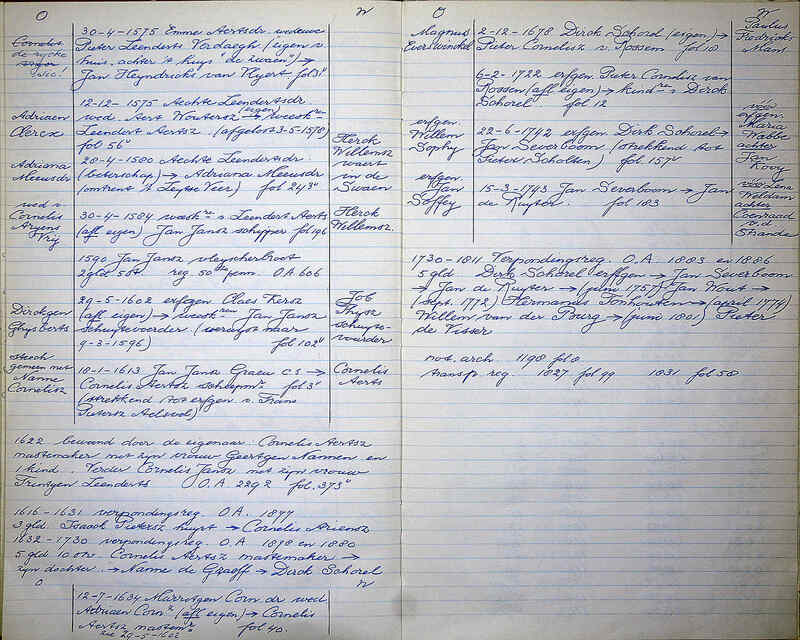 O W
30-4-1575 Emme Aertsdr. weduwe
Pieter Leenderts Verdaegh (eigen v.
huis, achter 't huys "de zwaen") →
Jan Heyndricks van Vlyert fol 3v
Cornelis
de rycke
12-12-1575 Aechte Leendertsdr
wed. Aert Woutersz (eigen) → weeskren
Leendert Aertsz. (afgelost 3-5-1578)
fol 56v
Adriaen
Clercx
20-4-1580 Aechte Leendertsdr.
(beterschap) → Adriana Meeusdr
(omtrent 't Leytse Veer) fol 243v
Adriana
Meeusdr
Herck
Willemsz
waert
in de
Swaen
30-4-1584 weeskren v. Leendert Aerts
(afl eigen) Jan Jansz schipper fol 196
wed v.
Cornelis
Aryens
Vrij
Herck
Willemsz.
1590 Jan Jansz vleyscherboot
2 gld 5 st reg 50ste penn. OA 606
29-5-1602 erfgen Claes Kersz
(afl eigen) → weeskren Jan Jansz
schuytevoerder (
9-3-1596) fol 102v
Dirckgen
Ghysberts
Job
Thysz
schuyte-
voerder
10-1-1613 Jan Jansz Graeu cs →
Cornelis Aertsz scheepmr fol 3v
(strekkend tot erfgen v. Frans
Pietersz
steech
gemeen met
Nanne
Cornelisz
Cornelis
Aerts
1622 bewoond door de eigenaar: Cornelis Aertsz
mastemaker met zijn vrouw Geertgen Nannen en
1 kind. Verder Cornelis Jansz met zijn vrouw
Trintgen Leenderts O.A. 2292 fol. 373v
1616-1631 verpondingsreg. O.A. 1877
3 gld. Isaack Pietersz huyrt → Cornelis Ariensz
1632-1730 verpondingsreg. O.A. 1878 en 1880
5 gld 10 st. Cornelis Aertsz mastemaker →
zijn dochter. → Nanne de Graeff → Dirck Schorel
O W
12-7-1634 Marritgen Corn.dr wed.
Adriaen Corn.z (afl eigen) → Cornelis
Aertsz mastemr fol 40.
zie 29-5-1602
O W
Magnus
Everswinckel
2-12-1678 Dirck Schorel (eigen) →
Pieter Cornelisz v. Rossem fol 10
Paulus
Fredricks
Mans.
6-2-1722 erfgen. Pieter Cornelisz van
Rossen (afl eigen) → kindren v Dirck
Schorel fol 12
erfgen.
Willem
Sophy
22-6-1742 erfgen. Dirk Schorel →
Jan Severboom (strekkend tot
Pieter Scholten) fol 157v
voor
erfgen.
Maria
achter
Jan
Kooy
erfgen
Jan
Soffey
15-3-1743 Jan Severboom → Jan
de Ruyter. fol 183
voor Lena
Willem
achter
Coenraad
v.d.
Strande
1730-1811 Verpondingsreg. O.A. 1883 en 1886
5 gld Dirk Schorel erffgen → Jan Severboom
→ Jan de Ruyter → (juni 1757) Jan Wout →
(sept. 1772) Hermanus Fonhouten → (april 1774)
Willem van der Burg → (juni 1801) Pieter
de Visser
not. arch. 1190 fol 8
transp. reg. 1827 fol 99 1831 fol 58